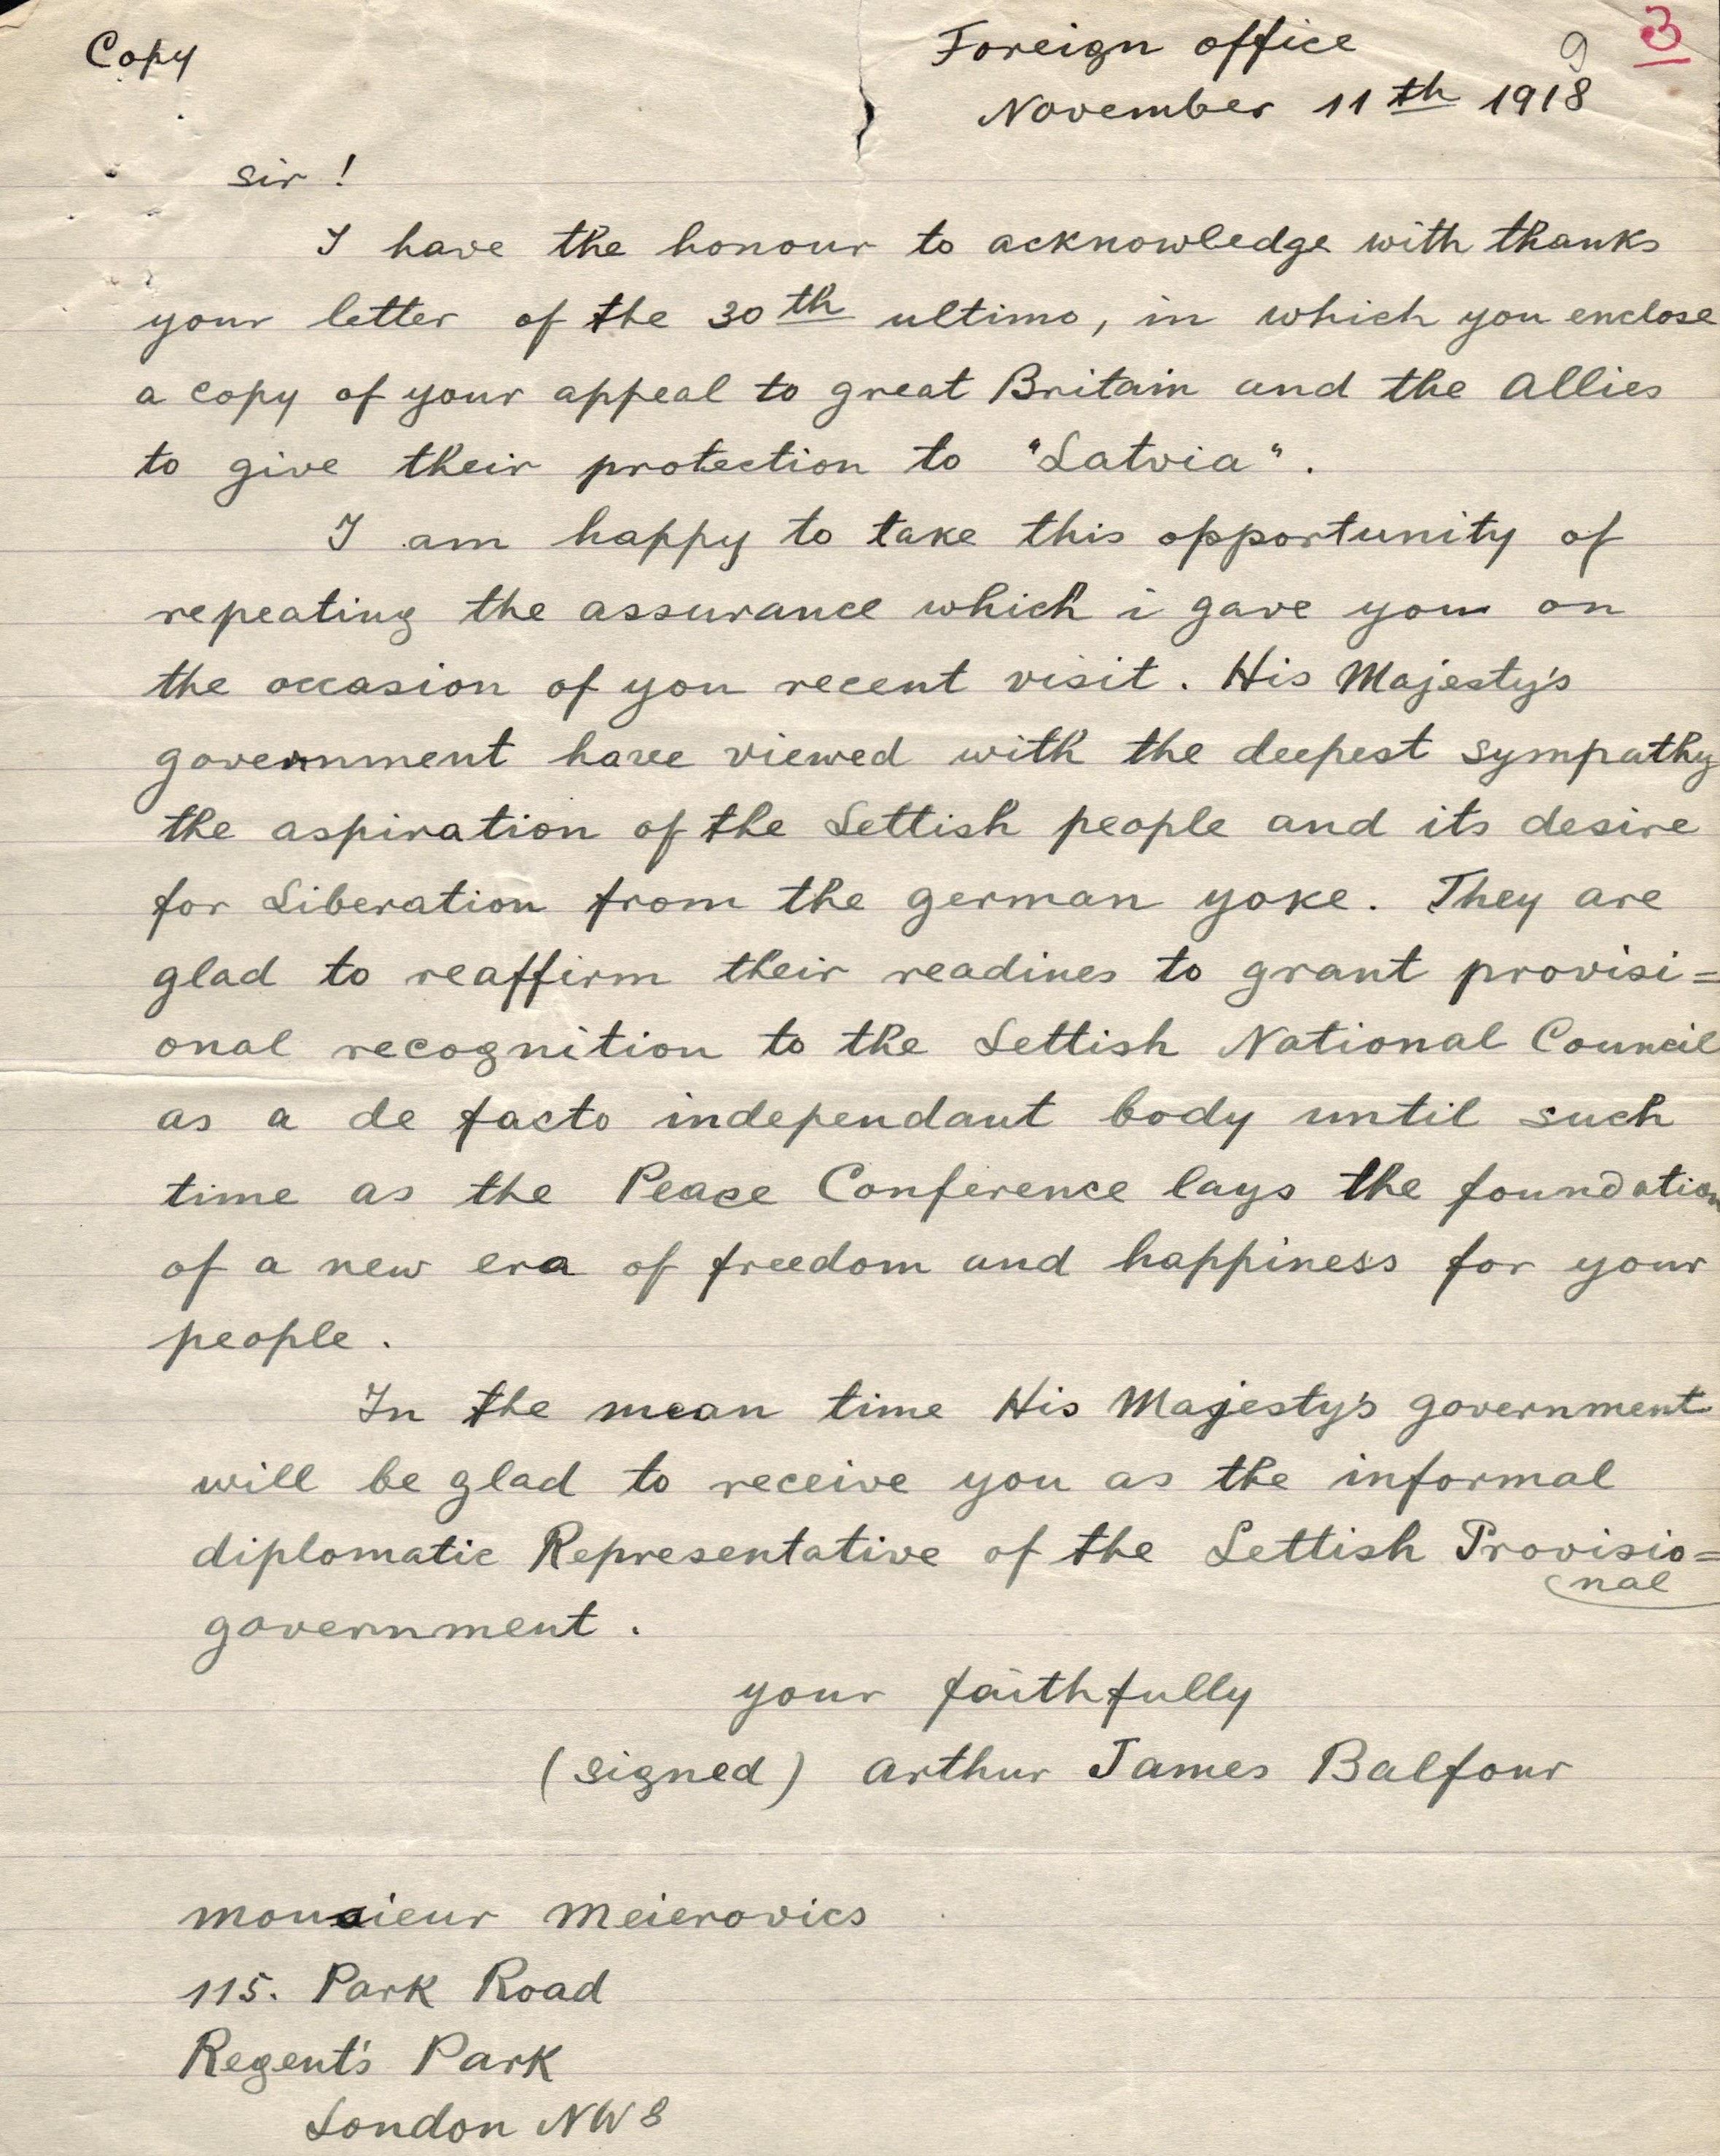 Copy
Foreign office 9 3
November 11th 1918
sir !
I have the honour to acknowledge with thanks
your letter of the 30th ultimo, in which you enclose
a copy of your appeal to great Britain and the Allies
to give their protection to "Latvia".
I am happy to take this opportunity of
repeating the assurance which i gave you on
the occasion of you recent visit. His Majesty's
government have viewed with the deepest sympathy
the aspiration of the Lettish people and its desire
for Liberation from the german yoke. They are
glad to reaffirm their readines to grant provisi=
onal recognition to the Lettish National Council
as a de facto independant body until such
time as the Peace Conference lays the foundation
of a new era of freedom and happiness for your
people.
In the mean time His Majesty's government
will be glad to receive you as the informal
diplomatic Representative of the Lettish Provisio=
nal
government.
your faithfully
(signed) Arthur James Balfour
monsieur Meierovics
115. Park Road
Regent's Park
London NW8